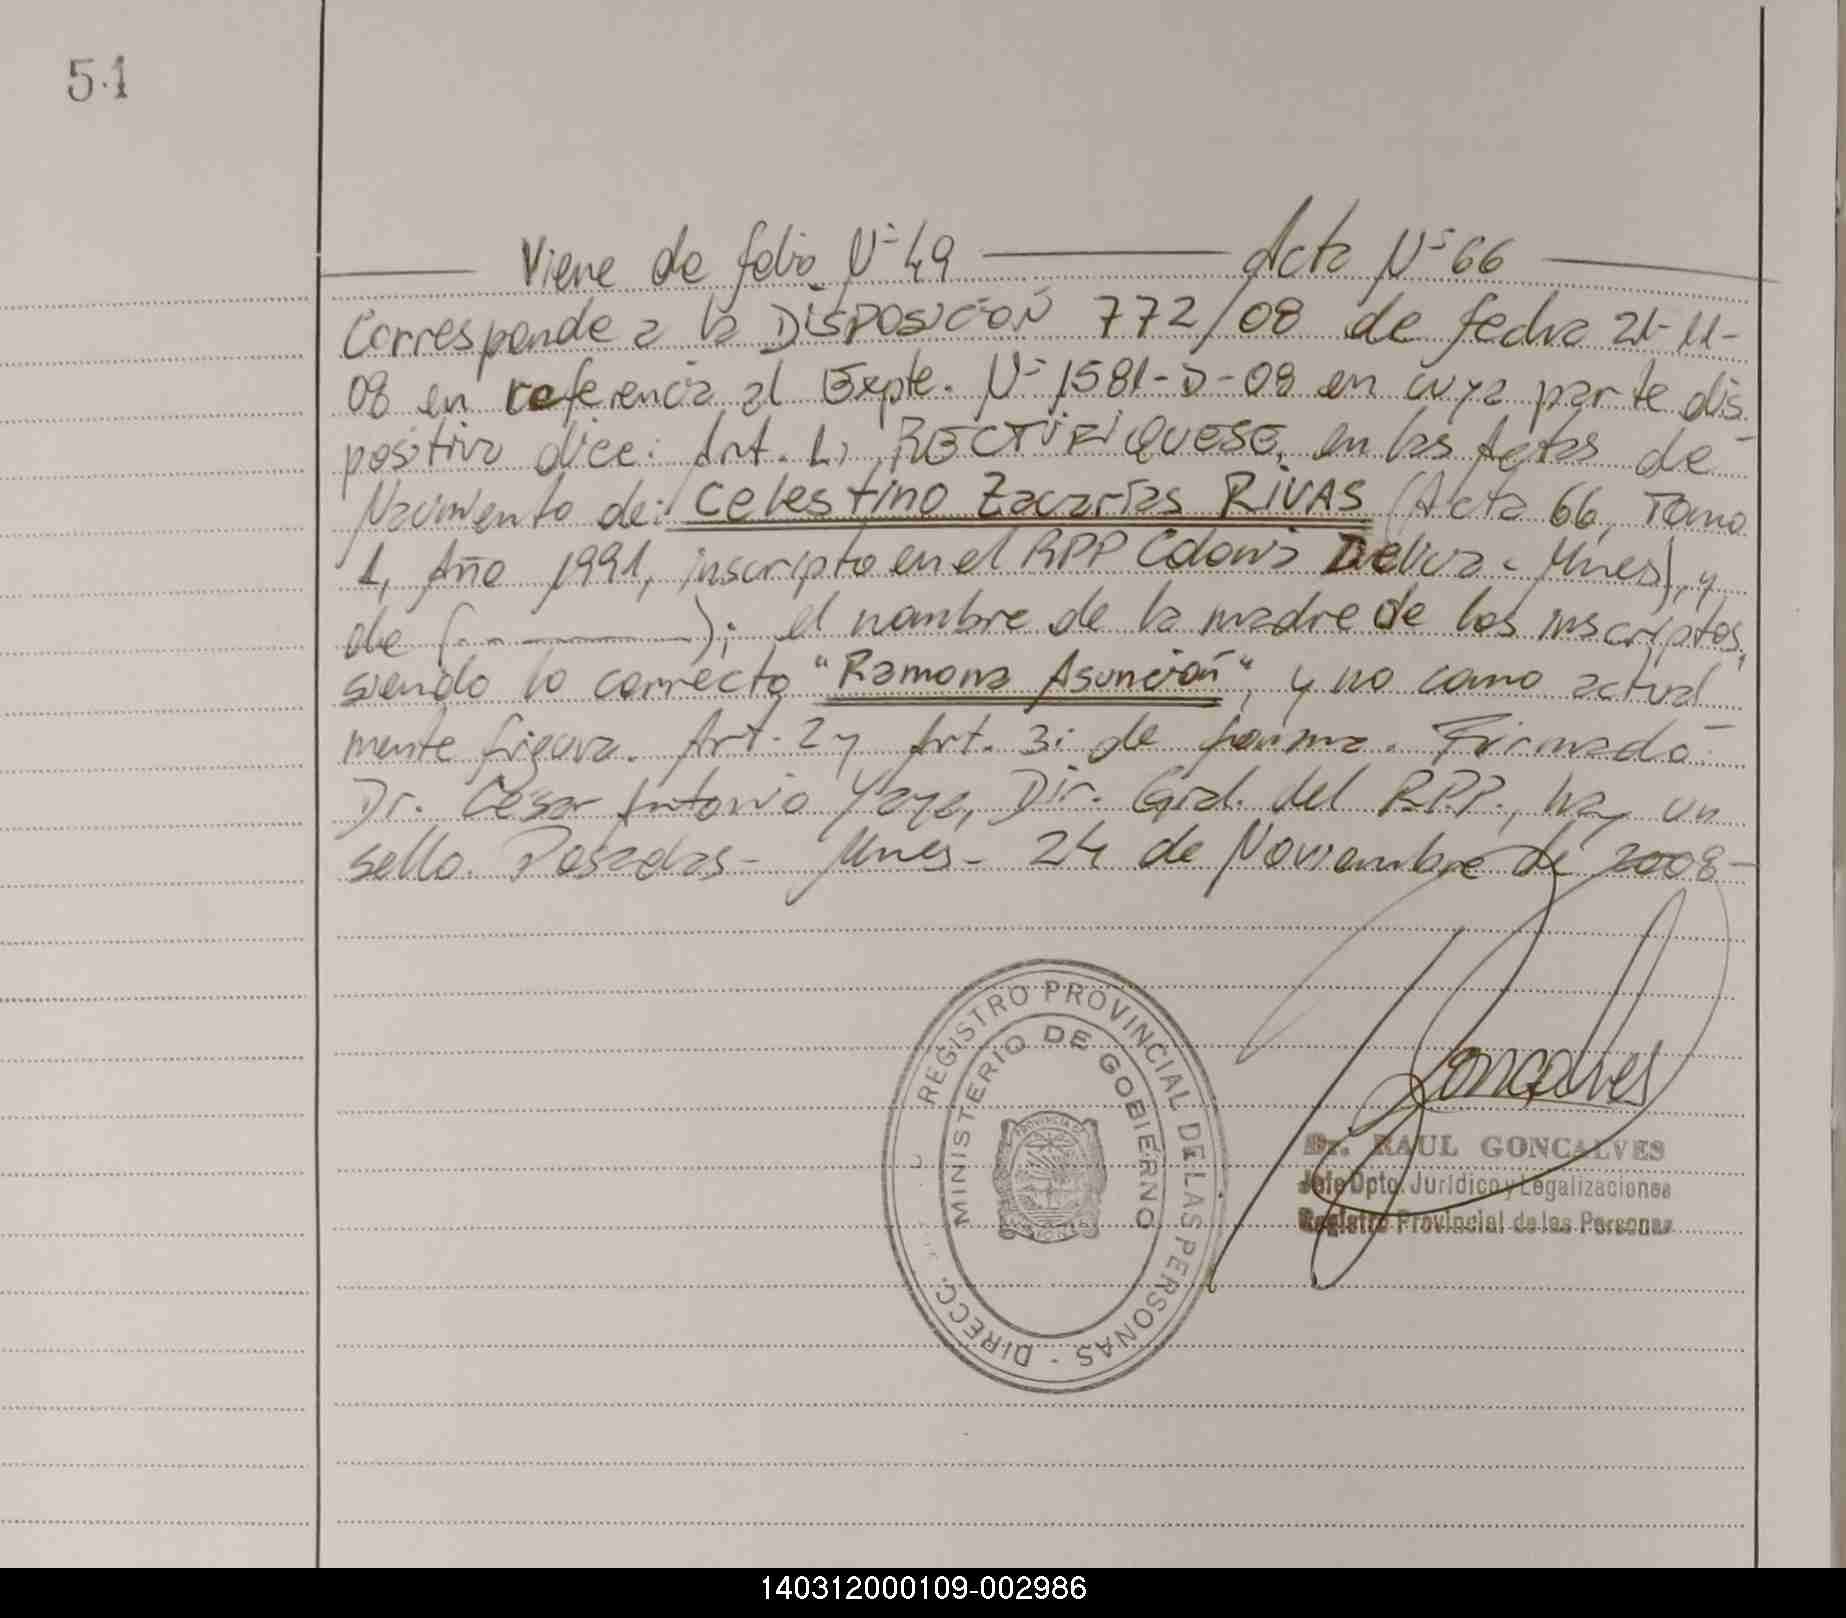 51
Viene de folio Nº 49 —— Acta Nº 66 ——
Corresponde a la DISPOSICIÓN 772/08 de fecha 21-11-
08 en referencia al Expte. Nº 1581-D-08 en cuya parte dis
positiva dice: Art. 1: RECTIFIQUESE, en las Actas de
Nacimiento de: Celestino Zacarías RIVAS (Acta 66, Tomo
1, Año 1991, inscripto en el RPP Colonia Delicia - Mnes), y
de (-- ———); el nombre de la madre de los inscriptos,
siendo lo correcto "Ramona Asunción", y no como actual
mente figura. Art. 2 y Art. 3: de forma. Firmado:
Dr. César Antonio Yaya, Dir. Gral. del R.P.P., hay un
sello. Posadas - Mnes - 24 de Noviembre de 2008-
REGISTRO PROVINCIAL DE LAS PERSONAS - DIRECC.
MINISTERIO DE GOBIERNO
PROVINCIA DE
MISIONES
Goncalves
Dr. RAUL GONCALVES
Jefe Dpto. Jurídico y Legalizaciones
Registro Provincial de las Personas
140312000109-002986